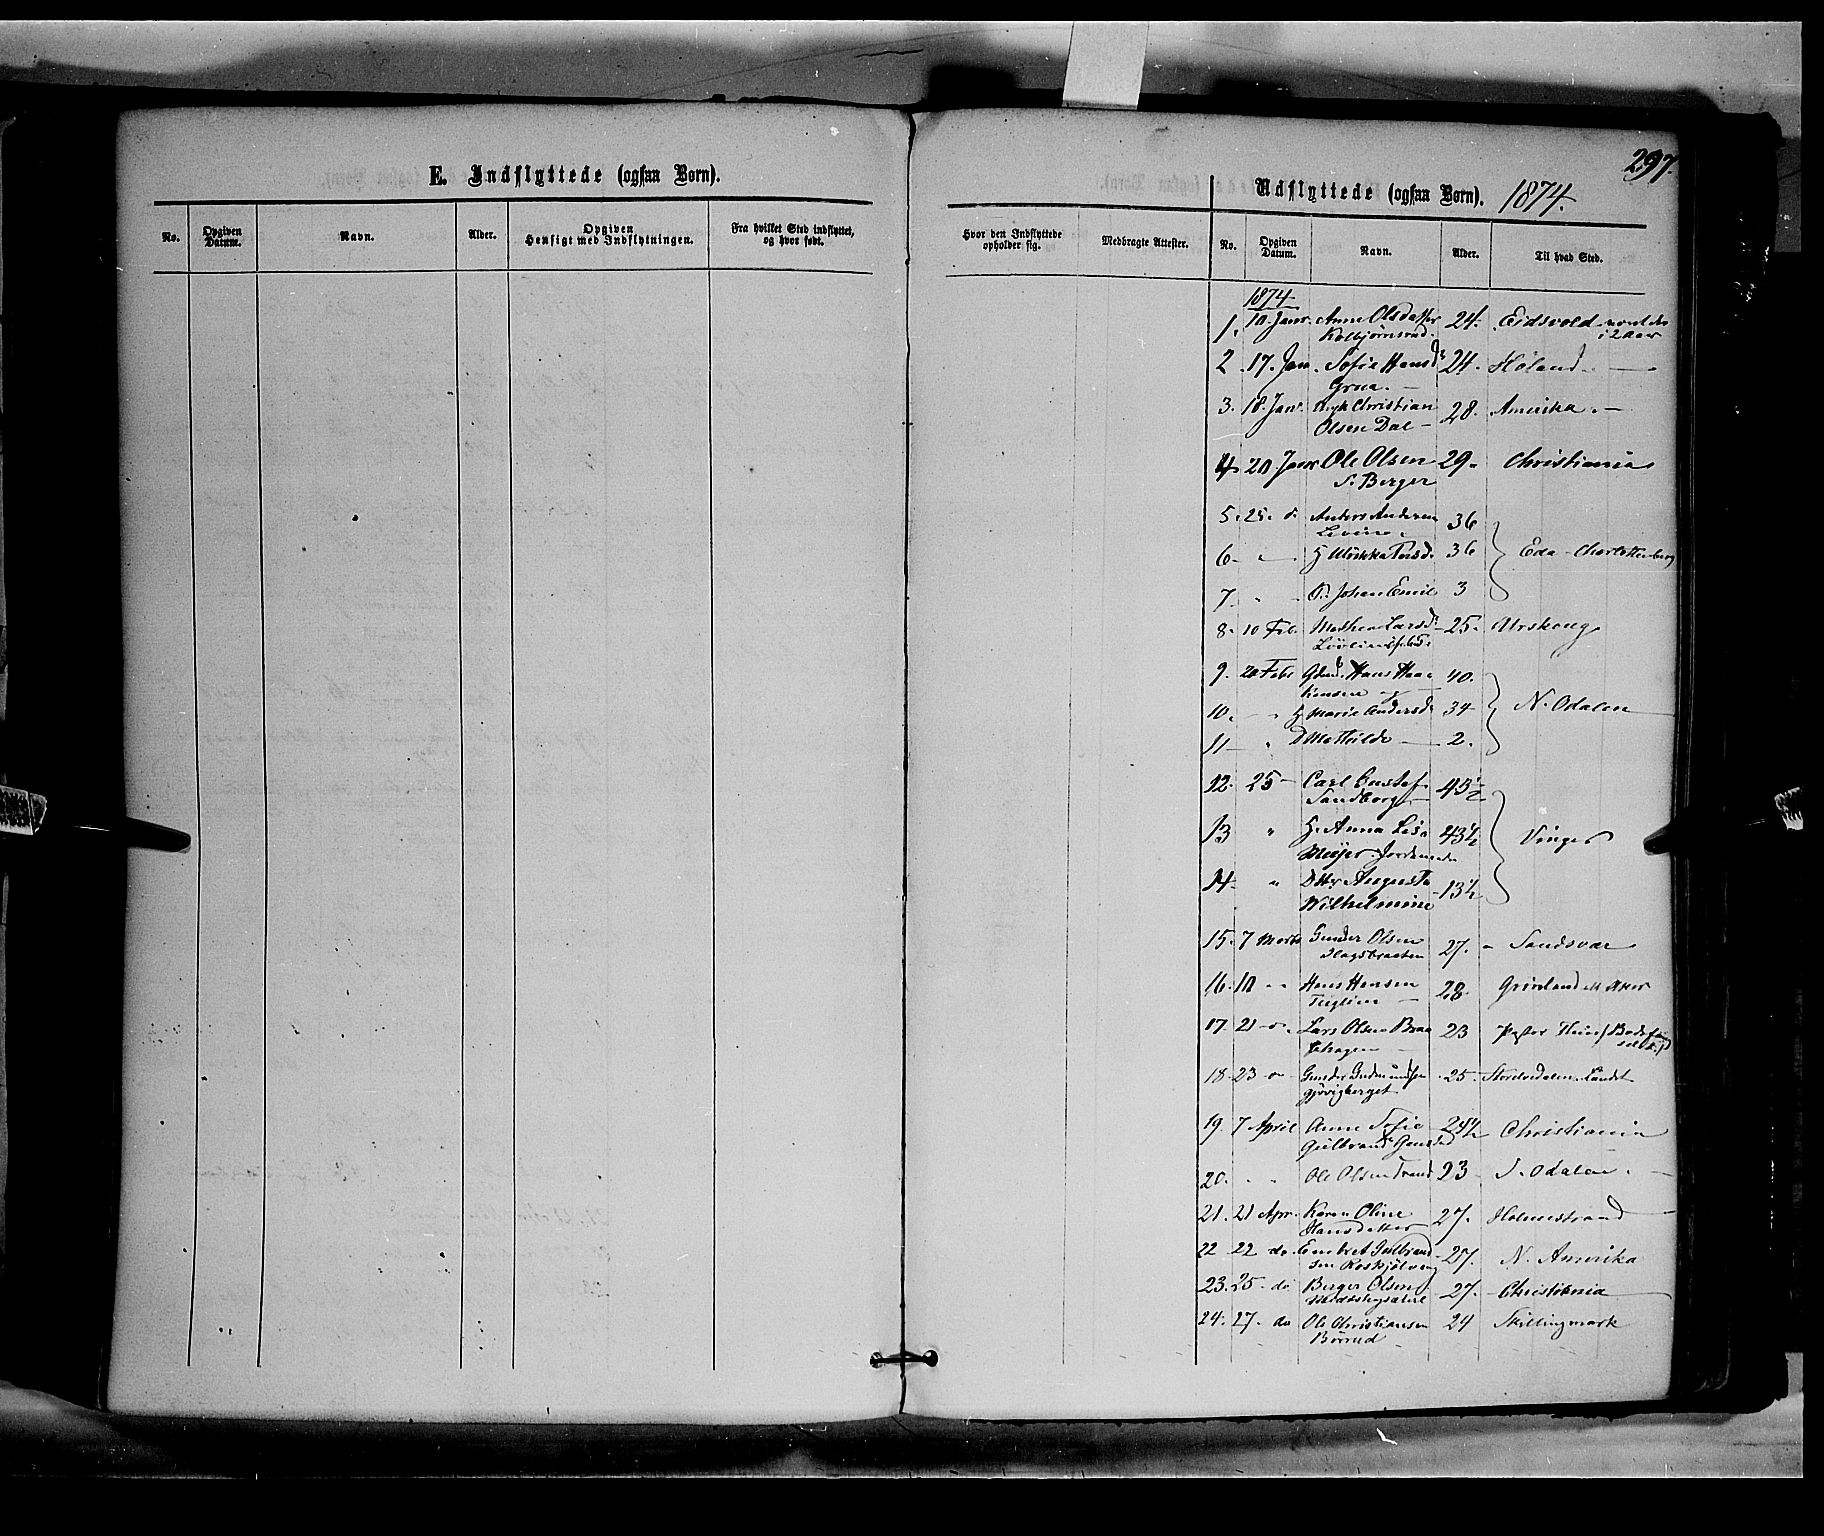 297.
E. Indflyttede (ogsaa Børn).
Udflyttede (ogsaa Børn). 1874.
No. Opgiven Datum. Navn. Alder. Opgiven Hensigt med Indflytningen. Fra hvilket Sted indflyttet, og hvor født.
Hvor den Indflyttede opholder sig. Medbragte Attester. No. Opgiven Datum. Navn. Alder. Til hvad Sted.
1874
1. 10. Janr. Anne Olsdatter 24. Eidsvold
Kolbjørnsrud. i 2 Aar
2 17. Jan. Sofie Hansd 24. Høland.
Grua.
3. 18. Janr. Christian 28. Amerika.
Olsen Dal
4 20 Janr Ole Olsen 29. Christiania
S. Berger
5. 25. d. Anders Andersen 36
6 36 Eda Charlottenberg
7 Johan Emil 3
8. 10 Feb. Mathea Larsd 25. Urskoug
9. 20 Feb Hans Haa 40.
kensen og
10. " H Marie Andersd 34 N. Odalen
11 " D Mathilde 2.
12. 25 Carl Gustaf 45½
Sandberg
13 " H. Anna Lisa 43½ Vinger
Meijer
14 " Dttr Augusta 13½
Wilhelmine
15. 7 Marts Gunder Olsen 27. Sandsvær
16. 10 Hans Hansen 28
Tuglien
17. 21 Lars Olsen Braa 23 Pastor
thagen
18. 23 Gunder Gudmundsen 25. Storelvedalen
gjøvigberget
19. 7 April Anne Sofie 24½ Christiania
Gulbrand
20. " " Ole Olsen Strand 23 S. Odalen.
21. 21 Apr. Karen Oline 27. Holmestrand
Hansdatter
22 22 do Embret Gulbrand 27. N. Amerika
sen
23. 25 do Berger Olsen 27. Christiania
24. 27 do Ole Christiansen 24 Skillingmark
Børrud